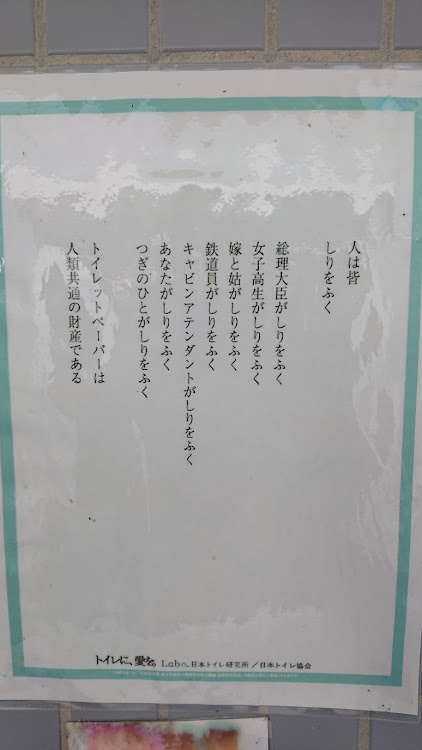 人は皆
しりをふく
総理大臣がしりをふく
女子高生がしりをふく
嫁と姑がしりをふく
鉄道員がしりをふく
キャビンアテンダントがしりをふく
あなたがしりをふく
つぎのひとがしりをふく
トイレットペーパーは
人類共通の財産である
トイレに、愛を。 Labo. 日本トイレ研究所 / 日本トイレ協会